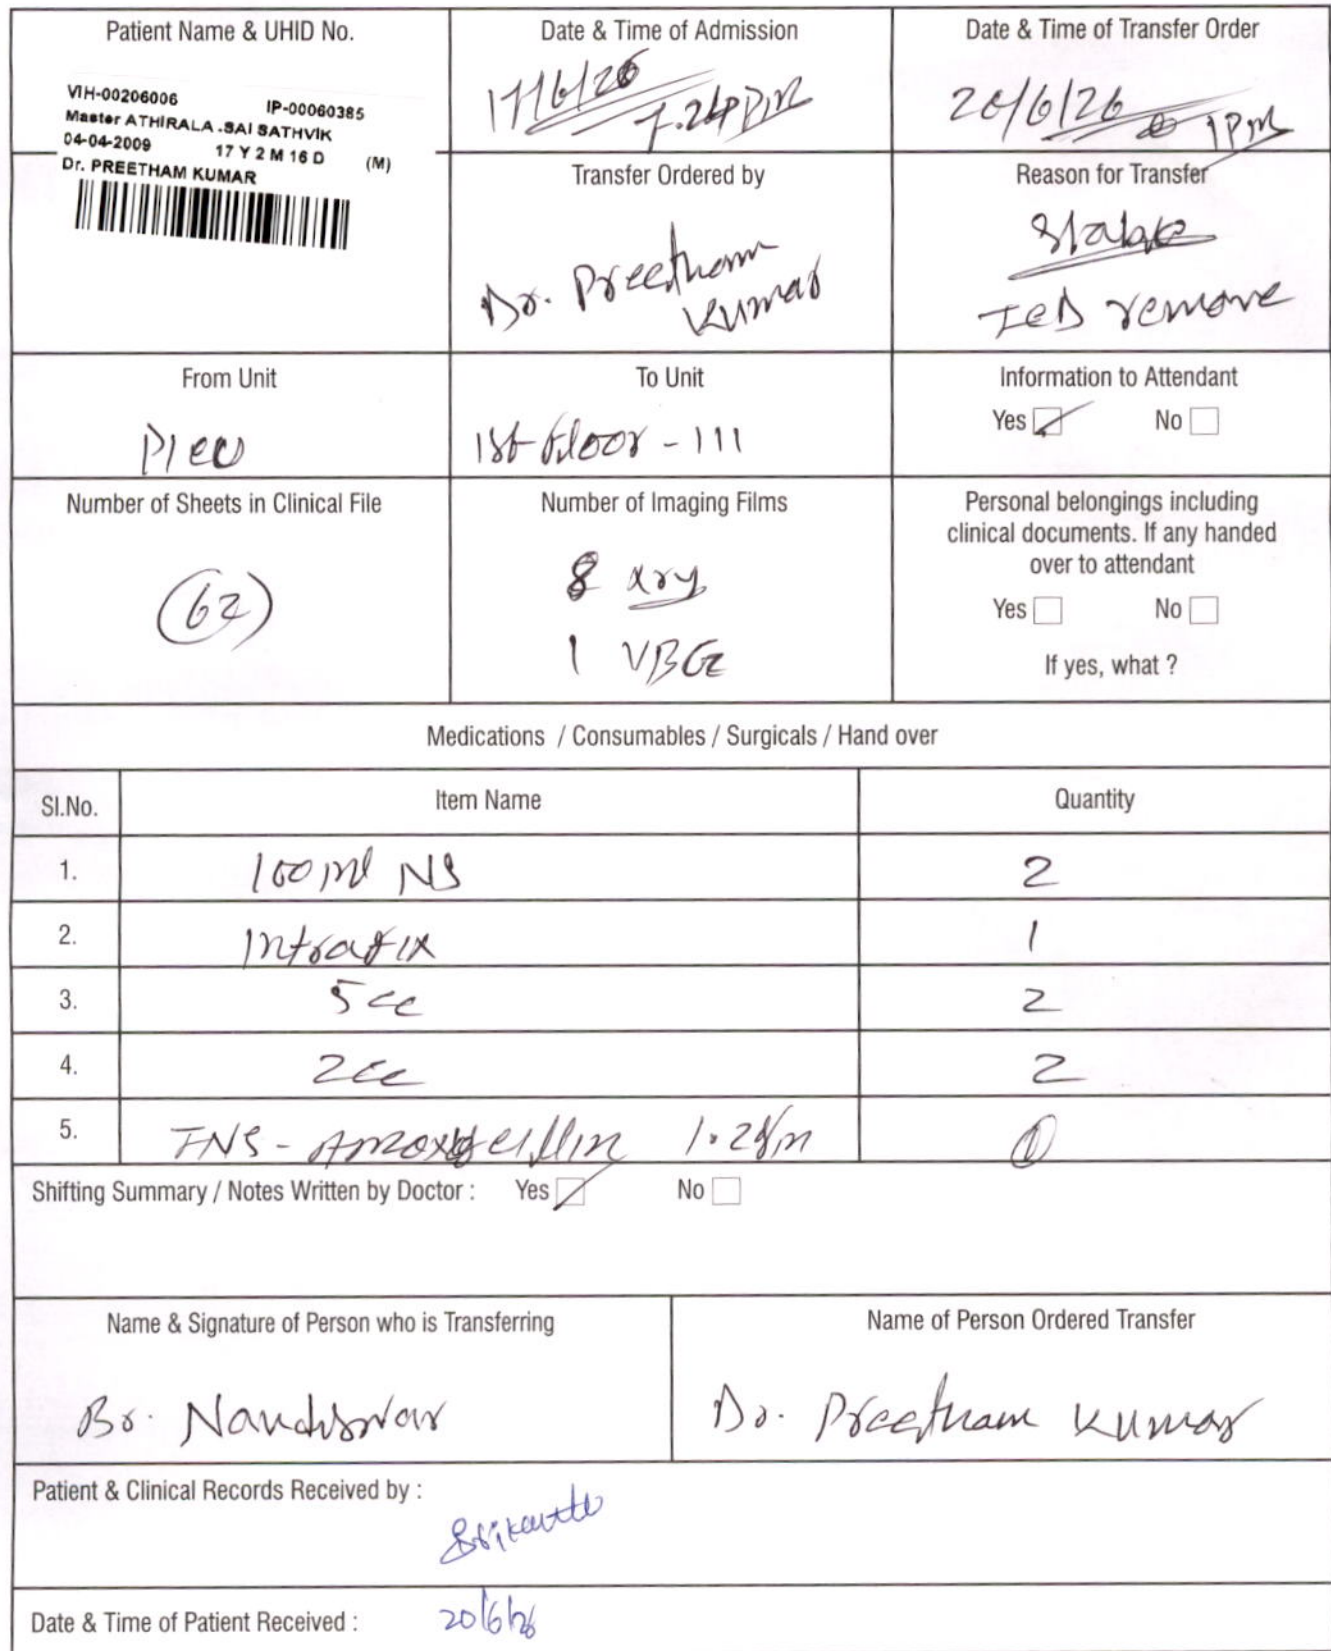 Patient Name & UHID No.
VIH-00206006 IP-00060385
Master ATHIRALA .SAI SATHVIK
04-04-2009 17 Y 2 M 16 D (M)
Dr. PREETHAM KUMAR
Date & Time of Admission
17/6/26
7.24PM
Date & Time of Transfer Order
20/6/26 @ 1PM
Transfer Ordered by
Dr. Preetham
Kumar
Reason for Transfer
Stable
ICD remove
From Unit
PICU
To Unit
1st floor - 111
Information to Attendant
Yes No
Number of Sheets in Clinical File
62
Number of Imaging Films
8 xry
1 VBG
Personal belongings including
clinical documents. If any handed
over to attendant
Yes No
If yes, what ?
Medications / Consumables / Surgicals / Hand over
Sl.No. Item Name Quantity
1. 100 ml NS 2
2. Intrafix 1
3. 5cc 2
4. 2cc 2
5. INS - Amoxycillin 1.2gm 1
Shifting Summary / Notes Written by Doctor : Yes No
Name & Signature of Person who is Transferring
Br. Nandiswar
Name of Person Ordered Transfer
Dr. Preetham Kumar
Patient & Clinical Records Received by :
Srikanth
Date & Time of Patient Received : 20/6/26